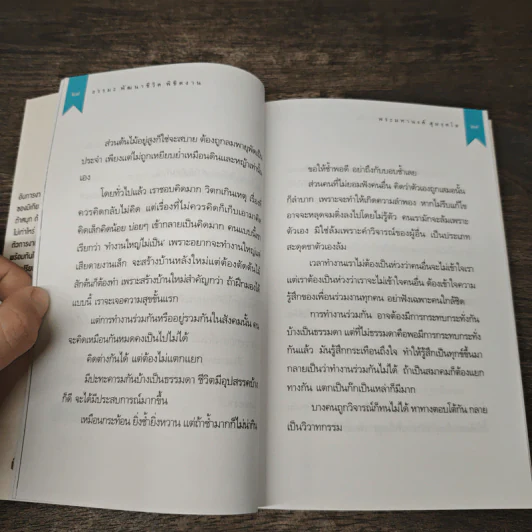 ธรรมะ พัฒนาชีวิต พิชิตงาน
ส่วนต้นไม้อยู่สูงก็ใช่จะสบาย ต้องถูกลมพายุพัดเป็น
ประจำ เพียงแต่ไม่ถูกเหยียบย่ำเหมือนดินและหญ้าเท่านั้น
เอง
โดยทั่วไปแล้ว เราชอบคิดมาก วิตกเกินเหตุ เรื่องที่
ควรคิดกลับไม่คิด แต่เรื่องที่ไม่ควรคิดก็เก็บเอามาคิด
คิดเล็กคิดน้อย บ่อยๆ เข้ากลายเป็นคิดมาก คนแบบนี้
เรียกว่า ทำงานใหญ่ไม่เป็น เพราะอยากจะทำงานใหญ่
เสียดายงานเล็ก จะสร้างบ้านหลังใหม่แต่ต้องตัดต้นไม้
สักต้นก็ต้องทำ เพราะสร้างบ้านใหม่สำคัญกว่า ถ้าฝึกมองได้
แบบนี้ เราจะเจอความสุขชั้นแรก
แต่การทำงานร่วมกันหรืออยู่ร่วมกันในสังคมนั้น
จะคิดเหมือนกันหมดคงเป็นไปไม่ได้
คิดต่างกันได้ แต่ต้องไม่แตกแยก
มีปะทะคารมกันบ้างเป็นธรรมดา ชีวิตมีอุปสรรคบ้าง
ก็ดี จะได้มีประสบการณ์มากขึ้น
เหมือนกระท้อน ยิ่งช้ำยิ่งหวาน แต่ถ้าช้ำมากก็ไม่น่ากิน
พระมหาสมปอง
ขอให้ช้ำพอดี อย่าถึงกับบอบช้ำเลย
ส่วนคนที่ไม่ยอมฟังคนอื่น คิดว่าตัวเองถูกเสมอนั้น
ก็ลำบาก เพราะจะทำให้เกิดความลำพอง หากไม่รีบแก้ไข
อาจจะหลุดจมดิ่งลงไปโดยไม่รู้ตัว คนเรามักจะล้มเพราะ
ตัวเอง มิใช่ล้มเพราะคำวิจารณ์ของผู้อื่น เป็นประเภท
สะดุดขาตัวเองล้ม
เวลาทำงานเราไม่ต้องเป็นห่วงว่าคนอื่นจะไม่เข้าใจเรา
แต่เราต้องเป็นห่วงว่าเราจะไม่เข้าใจคนอื่น ต้องเข้าใจความ
รู้สึกของเพื่อนร่วมงานทุกคน อย่าฟังเฉพาะคนใกล้ชิด
การทำงานร่วมกัน อาจต้องมีการกระทบกระทั่งกัน
บ้างเป็นธรรมดา แต่ที่ไม่ธรรมดาคือพอมีการกระทบกระทั่ง
กันแล้ว มันรู้สึกกระเทือนถึงใจ ทำให้รู้สึกเป็นทุกข์ขึ้นมา
กลายเป็นว่าทำงานร่วมกันไม่ได้ ถ้าเป็นสมาคมก็ต้องแยก
ทางกัน แตกเป็นก๊กเป็นเหล่าก็มีมาก
บางคนถูกวิจารณ์ก็ทนไม่ได้ หาทางตอบโต้กัน กลาย
เป็นวิวาทกรรม